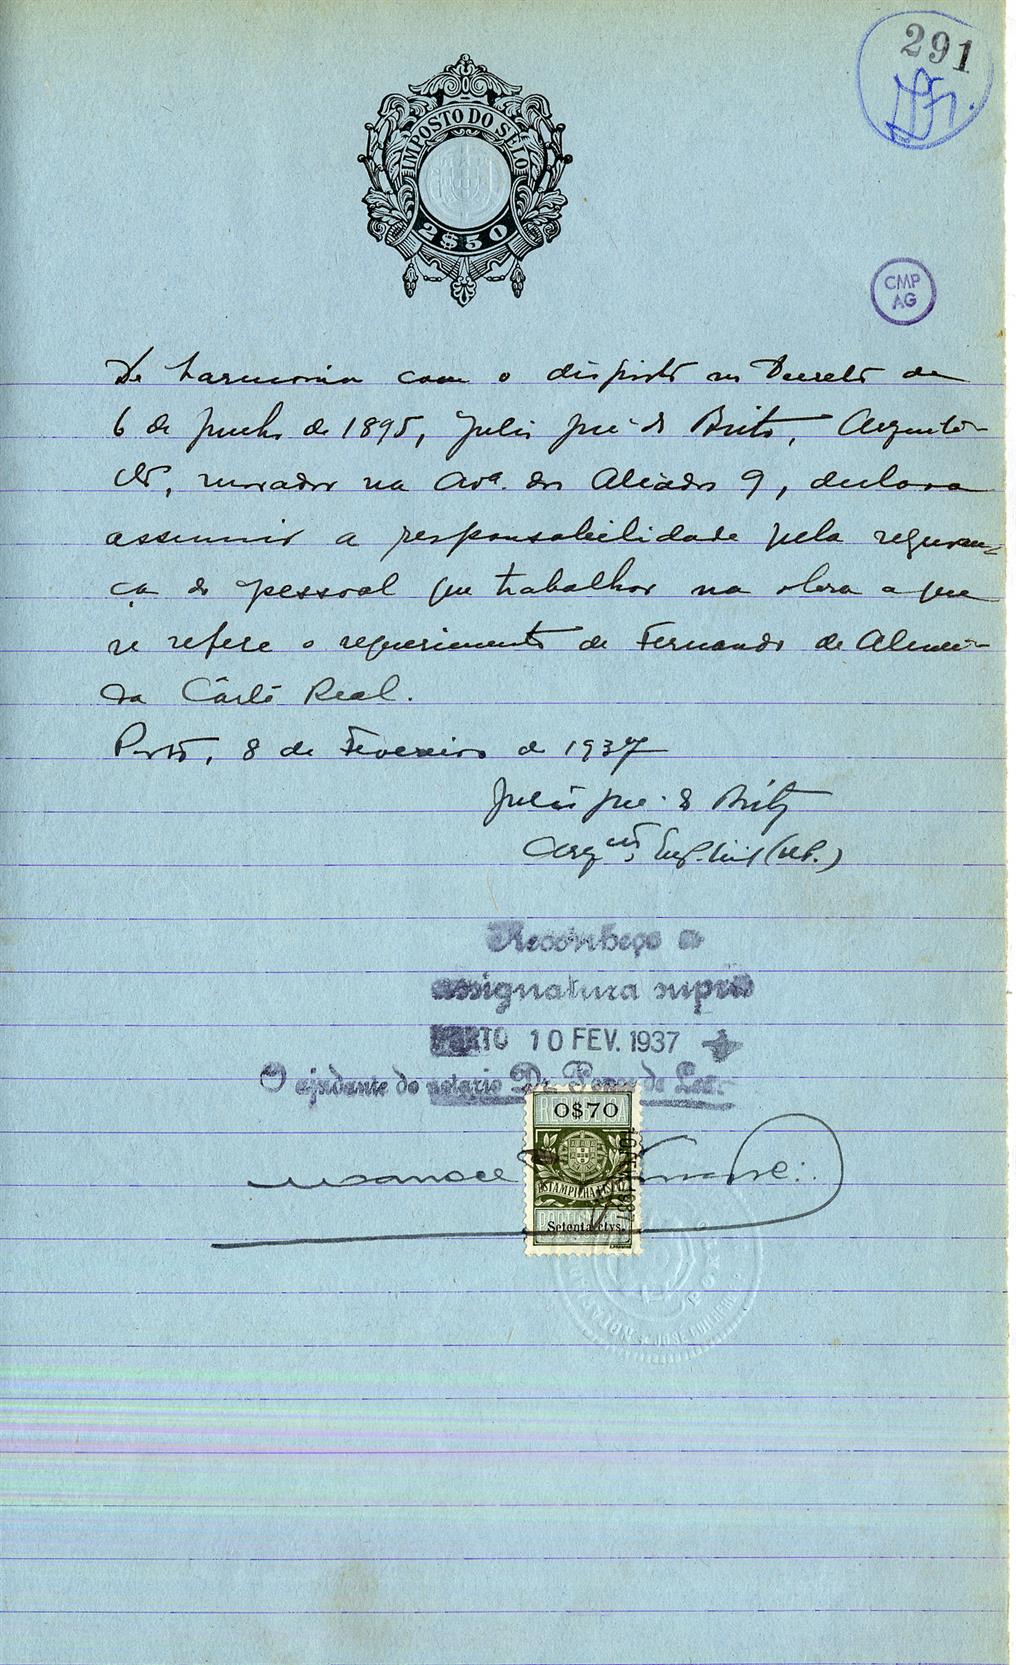 291
IMPOSTO DO SELO
2$50
CMP
AG
De harmonia com o disposto no Decreto de
6 de Junho de 1895, Julio José de Brito, Arquite-
cto, morador na Avª. dos Aliados 9, declara
assumir a responsabilidade pela seguran-
ça do pessoal que trabalhar na obra a que
se refere o requerimento de Fernando de Almei-
da Côrte Real.
Porto, 8 de Fevereiro de 1937
Julio José de Brito
Arqcto, Eng. Civil (U.P.)
Reconheço a
assignatura supra
PORTO 10 FEV. 1937
O ajudante do notario Dr. Ponce de Leão
0$70
ESTAMPILHA FISCAL
Setenta ctvs.